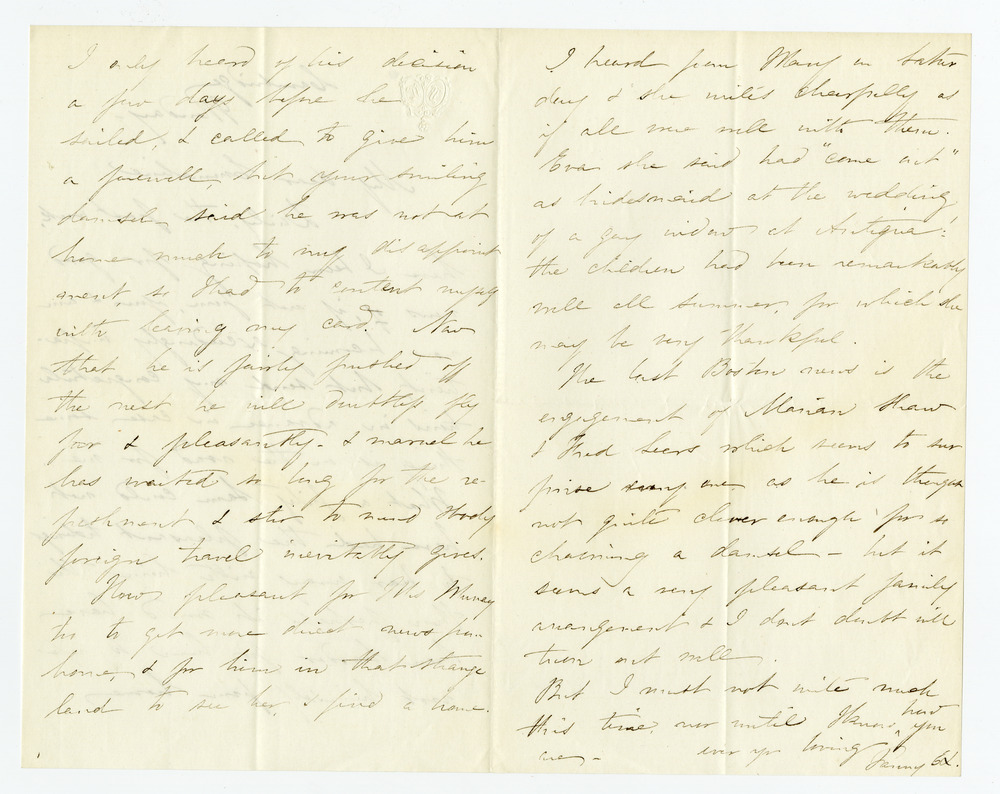 I only heard of his decision
a few days before he
sailed, & called to give him
a farewell, but your smiling
damsel said he was not at
home, much to my disappoint
ment, so I had to content myself
with leaving my card. Now
that he is fairly pushed off
the nest he will doubtless fly
far & pleasantly - & marvel he
has waited so long for the re-
freshment & stir to mind & body
foreign travel inevitably gives.
How pleasant for Mrs Murray
too to get more direct news from
home, & for him in that strange
land to see her, & find a home.
I heard from Mary on Satur
day & she writes cheerfully as
if all were well with them.
Eva she said had "come out"
as bridesmaid at the wedding
of a gay widow at Antigua!
the children had been remarkably
well all summer, for which she
may be very thankful.
The last Boston news is the
engagement of Marian Shaw
& Fred Sears which seems to sur
prise every one, as he is thought
not quite clever enough for so
charming a damsel - but it
seems a very pleasant family
arrangement & I don't doubt will
turn out well.
But I must not write much
this time, nor until I know how you
are - ever yr loving
Fanny